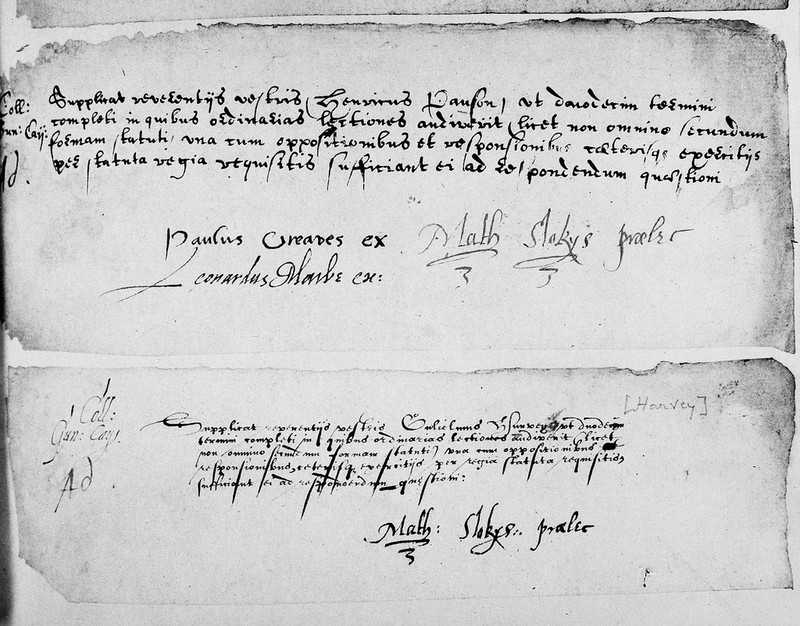 Coll:
Gun: Caij:
Ad
Supplicat reverentijs vestris, Henricus Pauson, vt duodecim termini
completi in quibus ordinarias lectiones audiverit (licet non omnino secundum
formam statuti) vna cum oppositionibus et responsionibus cæterisqs exercitijs
per statuta regia requisitis sufficiant ei ad respondendum quæstioni
Paulus Greaves ex Math Stokys prælec
Leonardus ex:
Coll:
Gun: Caij.
Ad
[Harvey]
Supplicat reverentijs vestris Gulielmus vt duodecim
termini completi in quibus ordinarias lectiones audiverit (licet
non omnino secundum formam statuti) vna cum oppositionibus
responsionibus, ceterisqs exercitijs per regia statuta requisitis
sufficiant ei ad respondendum quæstioni.
Math: Stokys: prælec